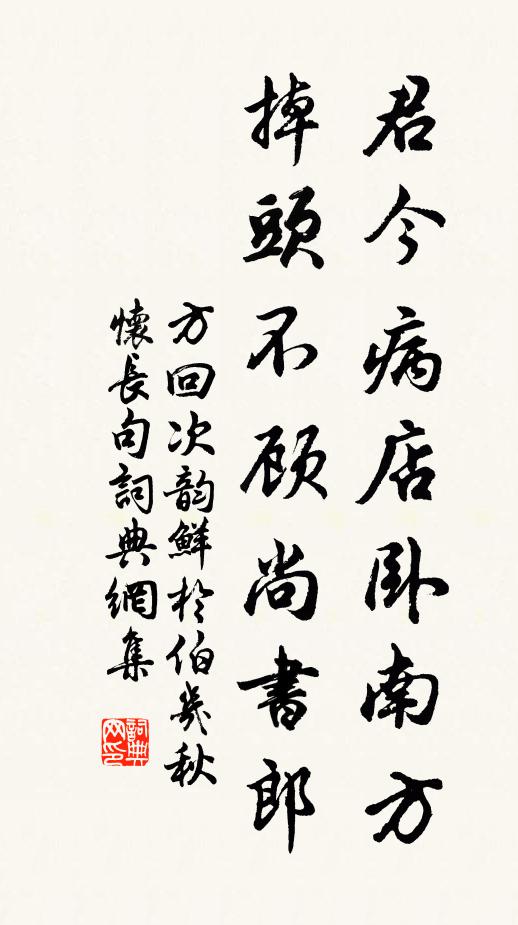 君今病店卧南方
掉頭不顾尚書郎
方回次韵鮮於伯岁秋
懷長句詞典網集
詞典网印